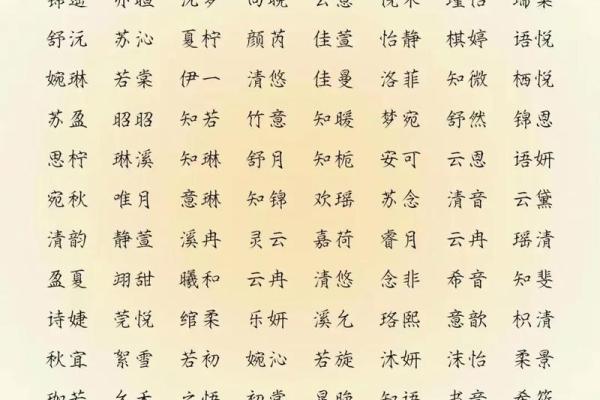 舒沅 苏沁 夏柠 颜芮 佳萱 怡静 棋婷 语悦
婉琳 若棠 伊一 清悠 佳曼 洛菲 知微 栖悦
苏盈 昭昭 知若 竹意 知暖 梦宛 舒然 锦恩
思柠 琳溪 知琳 舒月 知栀 安可 云恩 语妍
宛秋 唯月 意琳 知锦 欢瑶 苏念 清音 云黛
清韵 静萱 溪冉 灵云 嘉荷 睿月 云冉 瑶清
盈夏 翊甜 曦和 云冉 清悠 念非 希音 知斐
诗婕 莞悦 绾柔 乐妍 溪允 珞熙 意歆 枳清
秋宜 絮雪 若初 婉沁 若旋 沐妍 沫怡 柔景